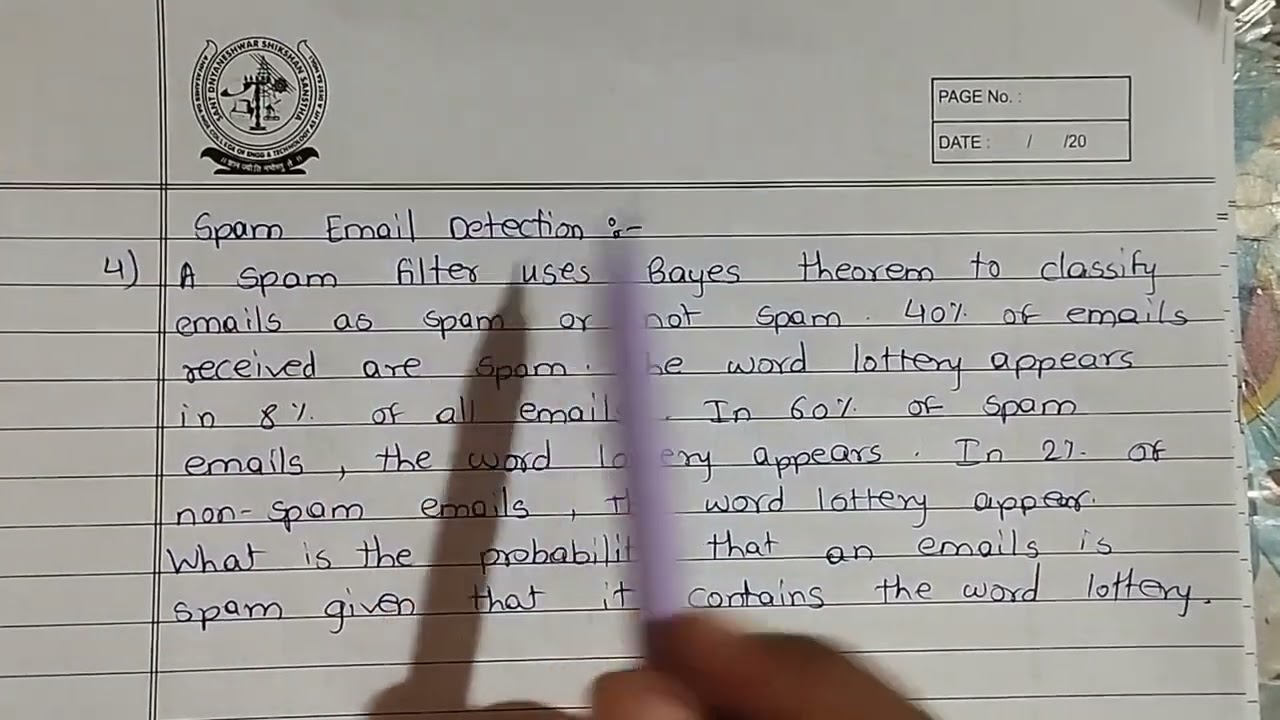 SANT DNYANESHWAR SHIKSHAN SANSTHA
PAGE No. :
DATE : / /20
Spam Email Detection :-
4) A spam filter uses Bayes theorem to classify
emails as spam or not spam. 40% of emails
received are spam. he word lottery appears
in 8% of all email . In 60% of spam
emails, the word lo ery appears. In 2% of
non-spam emails, th word lottery appear.
What is the probabilit that an emails is
spam given that it contains the word lottery.